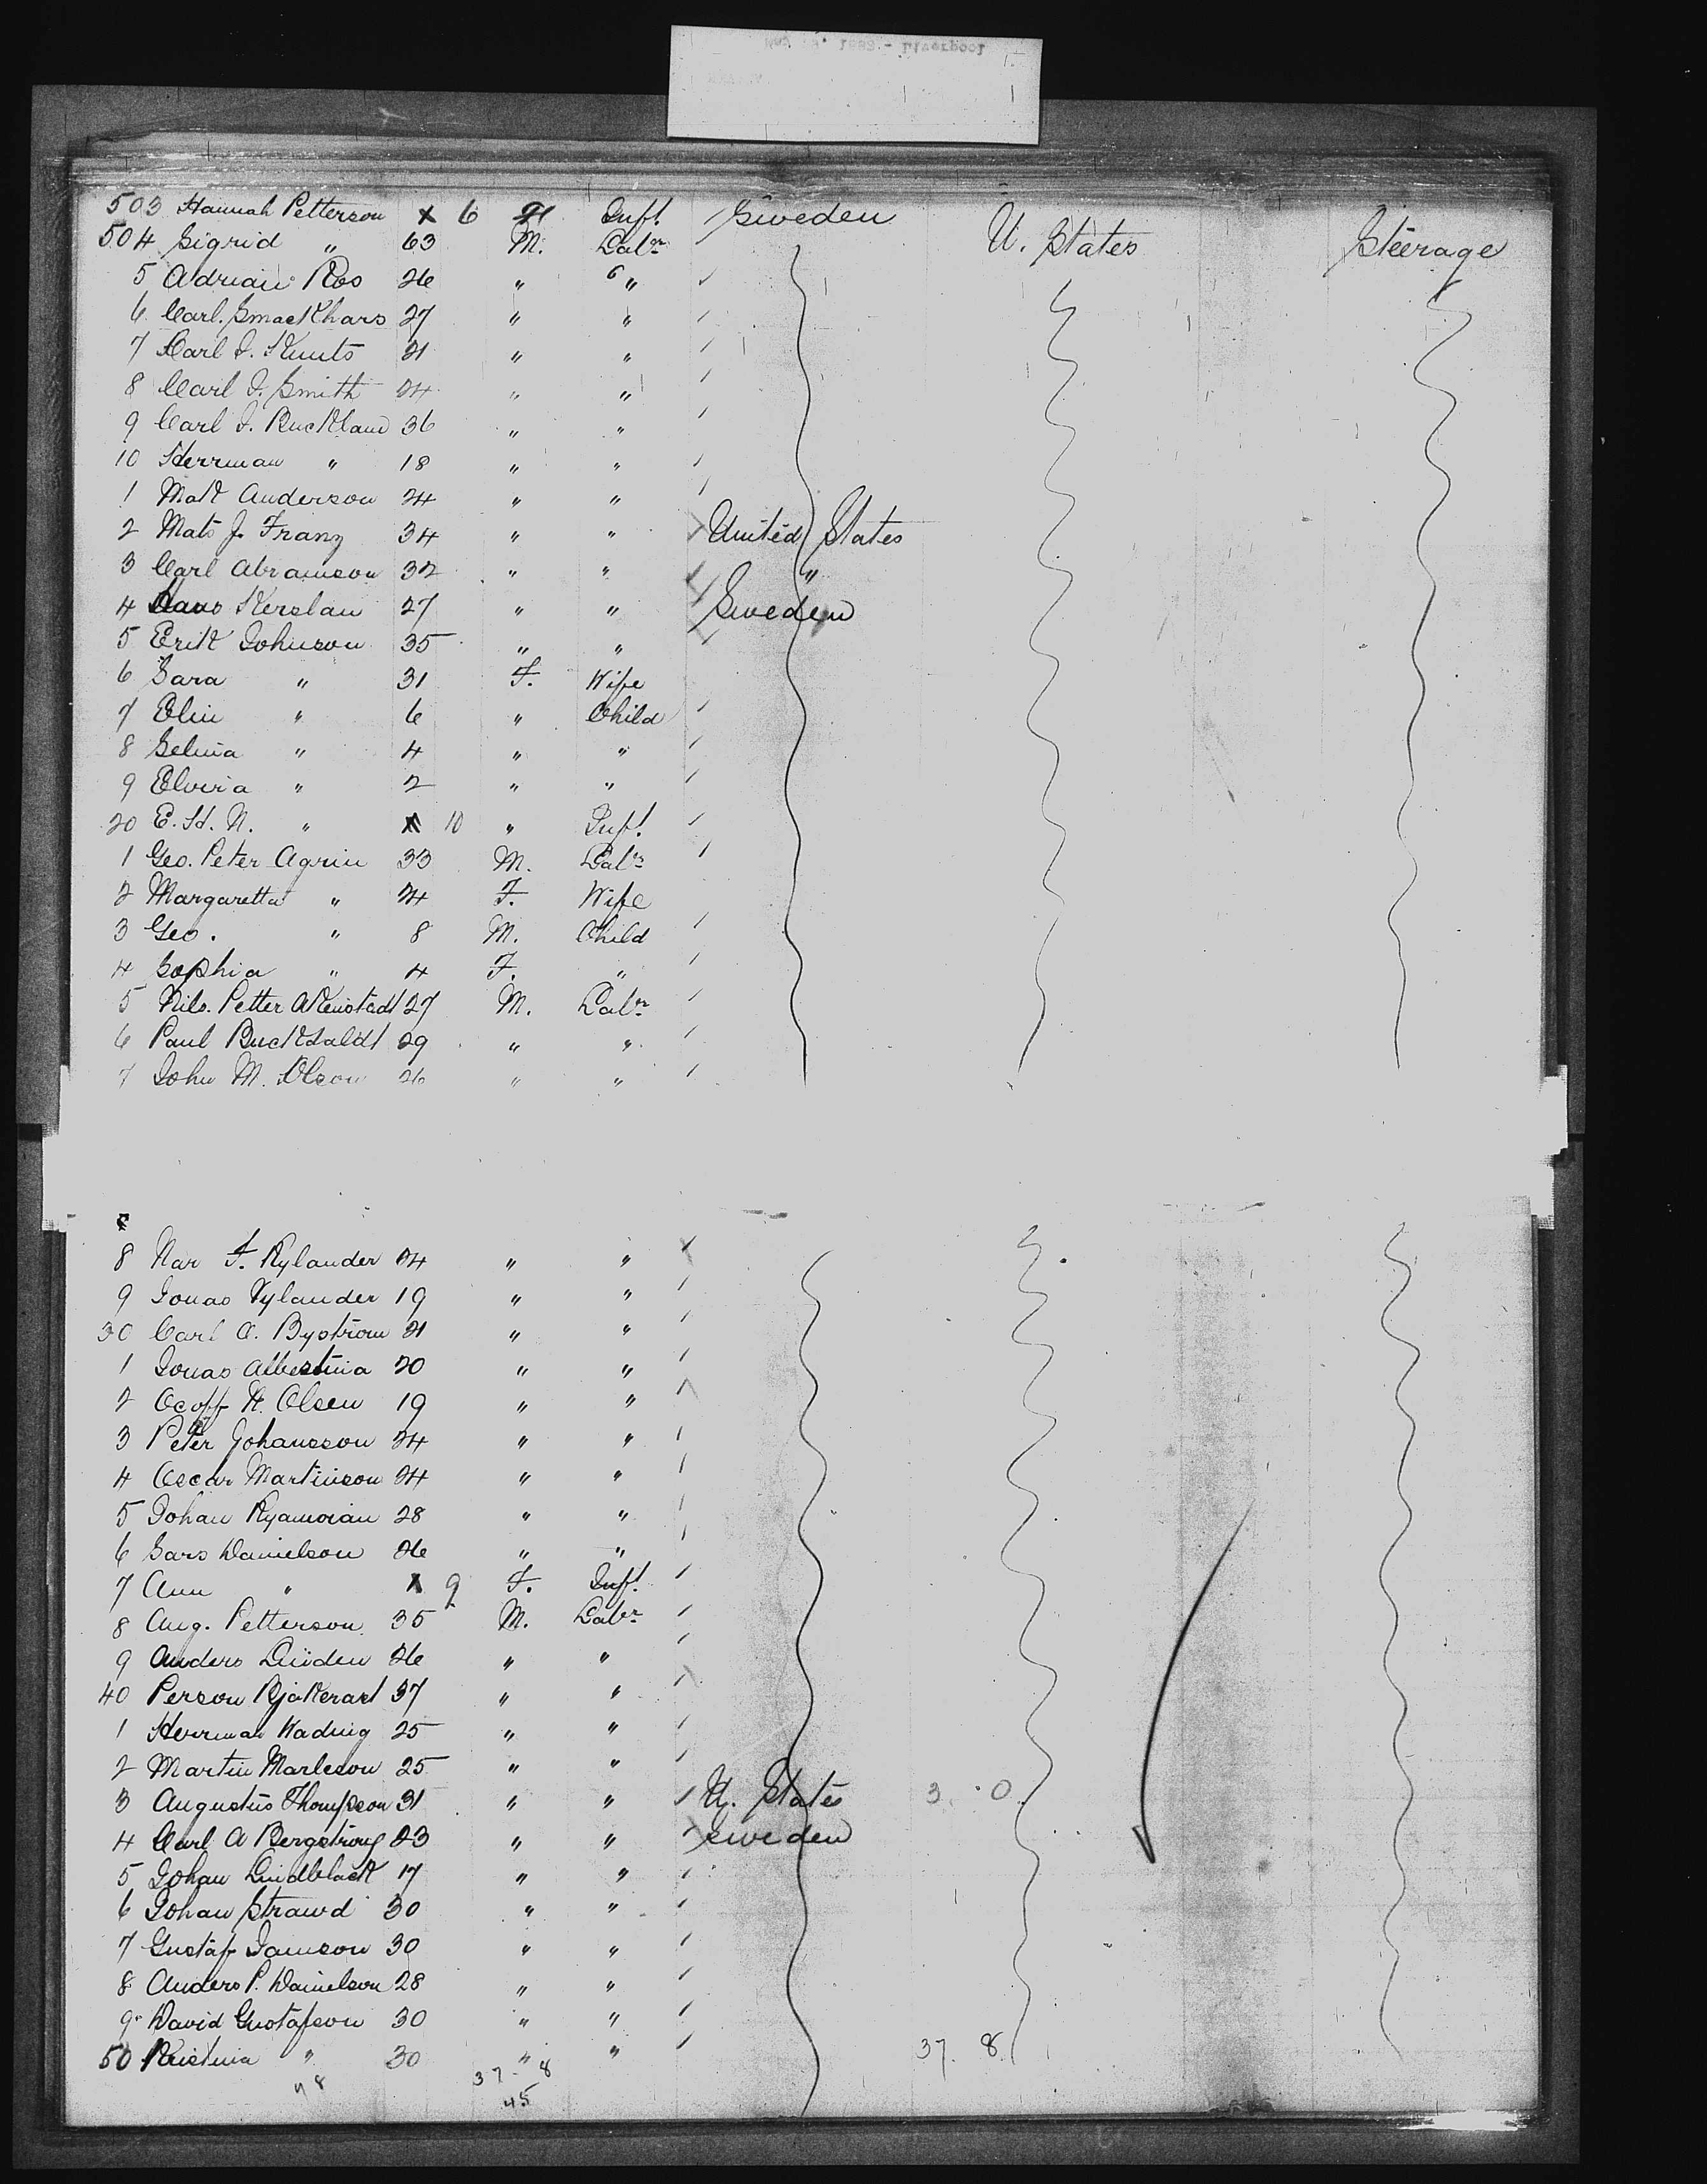 503 Hannah Petterson 6 F Inft Sweden
504 Sigrid " 63 M. Labr U. States Steerage
5 Adrian Ros 26 " "
6 Carl. Smackhars 27 " "
7 Carl I. Kunts 21 " "
8 Carl I. Smith 24 " "
9 Carl I. Buckland 36 " "
10 Herrman " 18 " "
1 Matt Anderson 24 " "
2 Mats J. Franz 34 " " United States
3 Carl Abramson 32 " " "
4 Kerslan 27 " " Sweden
5 Erik Johnson 35 " "
6 Sara " 31 F. Wife
7 Elin " 6 " Child
8 Selma " 4 " "
9 Elvira " 2 " "
20 E. H. N. " 10 " Inft
1 Geo. Peter Agrin 33 M. Labr
2 Margaretta " 24 F. Wife
3 Geo. " 8 M. Child
4 Sophia " 4 F. "
5 Nils. Petter Akenstadt 27 M. Labr
6 Paul 29 " "
7 John M. Olson 26 " "
8 Nar F. Rylander 24 " "
9 Jonas Rylander 19 " "
30 Carl A. Bystrom 21 " "
1 Jonas Albestina 20 " "
2 H. Olsen 19 " "
3 Peter Johansson 24 " "
4 Oscar Martinson 24 " "
5 Johan 28 " "
6 Lars Danielson 26 " "
7 Ann " 9 F. Inft
8 Aug. Petterson 35 M. Labr
9 Anders Linden 26 " "
40 Person 37 " "
1 Herrman Wading 25 " "
2 Martin Marleson 25 " "
3 Augustus Thompson 31 " " U. States 3. 0
4 Carl A Bergstrong 23 " " Sweden
5 Johan Lindblack 17 " "
6 Johan Strawd 30 " "
7 Gustaf Jamson 30 " "
8 Anders P. Danielson 28 " "
9 David Gustafson 30 " "
50 Kristina " 30 " " 37. 8.
48 37-8
45